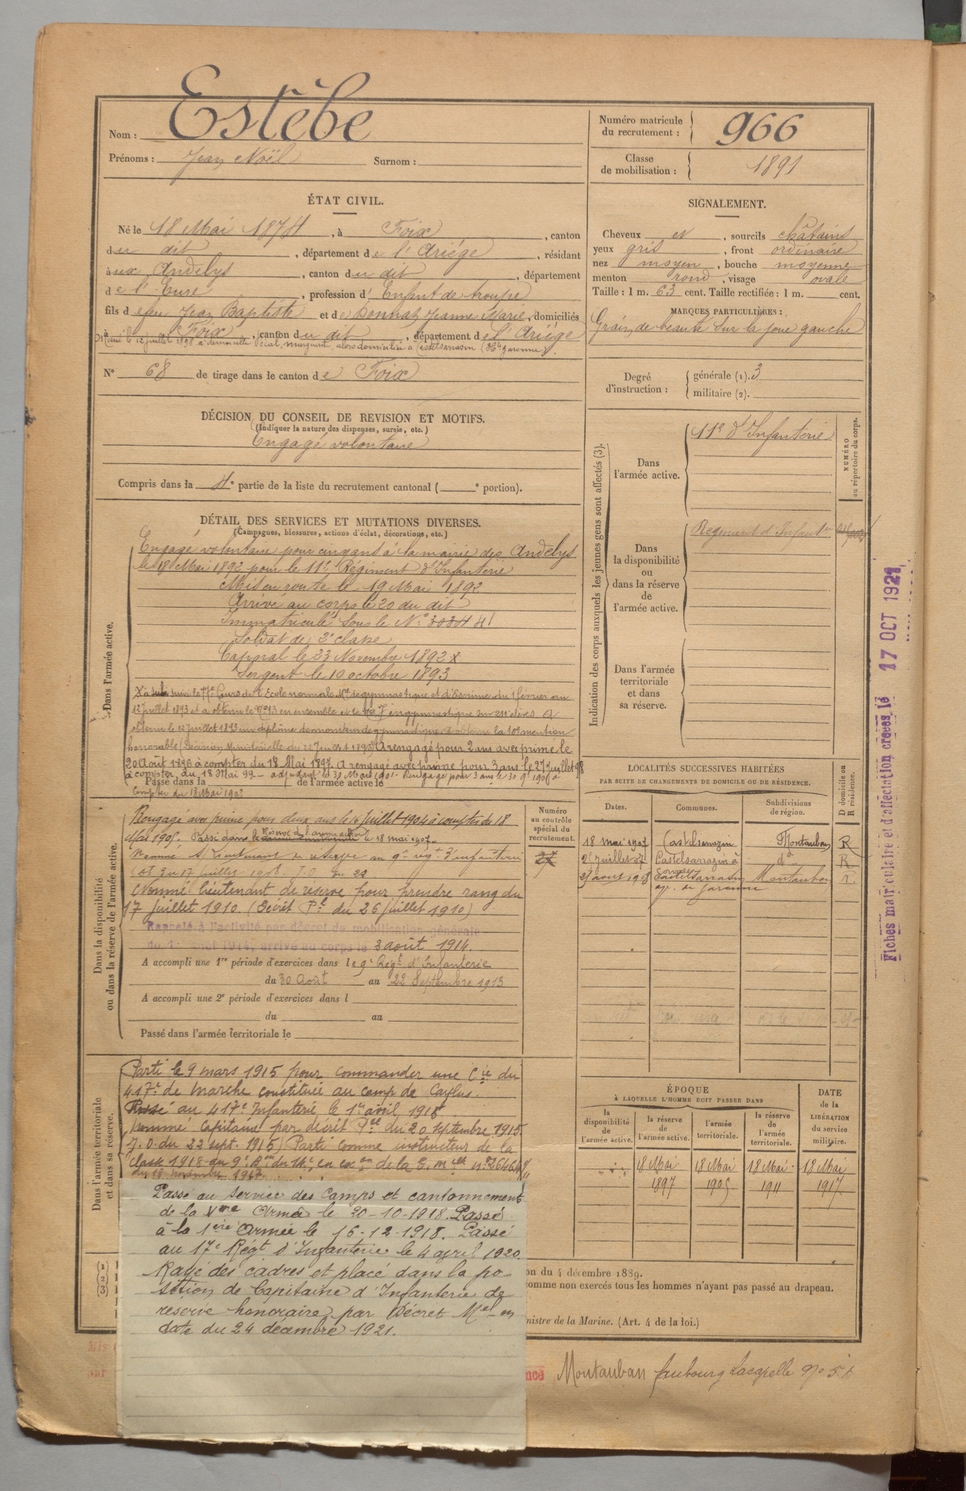 Nom : Estèbe
Prénoms : Jean Noël Surnom :
Numéro matricule du recrutement : 966
Classe de mobilisation : 1891
ÉTAT CIVIL.
Né le 18 Mai 1874, à Foix, canton
du dit, département de l'Ariége, résidant
aux Andelys, canton du dit, département
de l'Eure, profession d'Enfant de troupe
fils de feu Jean Baptiste et de Donnat Jeanne Marie, domiciliés
à Foix, canton du dit, département de l'Ariége
N° 68 de tirage dans le canton de Foix
SIGNALEMENT.
Cheveux et, sourcils châtains
yeux gris, front ordinaire
nez moyen, bouche moyenne
menton rond, visage ovale
Taille : 1 m. 63 cent. Taille rectifiée : 1 m. cent.
MARQUES PARTICULIÈRES :
Grain de beauté sur la joue gauche
Degré d'instruction : générale (1). 3
militaire (2).
DÉCISION DU CONSEIL DE REVISION ET MOTIFS.
(Indiquer la nature des dispenses, sursis, etc.)
Engagé volontaire
Compris dans la 4e partie de la liste du recrutement cantonal ( e portion).
DÉTAIL DES SERVICES ET MUTATIONS DIVERSES.
(Campagnes, blessures, actions d'éclat, décorations, etc.)
Dans l'armée active.
Engagé volontaire pour cinq ans à la mairie des Andelys
le 18 Mai 1892 pour le 11e Régiment d'Infanterie
Mis en route le 19 Mai 1892
Arrivé au corps le 20 du dit
Immatriculé sous le N°
Soldat de 2e classe
Caporal le 23 Novembre 1892 x
Sergent le 10 octobre 1893
A rengagé pour 2 ans avec prime le
20 Août 1896 à compter du 18 Mai 1897. A rengagé avec prime pour 3 ans le 27 juillet 98
à compter du 18 Mai 99
Passé dans la de l'armée active le
compter du 18 Mai 1902
Dans la disponibilité ou dans la réserve de l'armée active.
Rengagé avec prime pour deux ans le juillet 1904 à compter du 18
Mai 1905. Passé dans la le 18 mai 1907
Nommé S/Lieutenant de réserve au 9e rég. d'infanterie
Nommé lieutenant de réserve pour prendre rang du
17 juillet 1910 (Décret Pel du 26 juillet 1910)
Rappelé à l'activité par décret de mobilisation générale
du 1er août 1914, arrivé au corps le 3 août 1914.
A accompli une 1re période d'exercices dans le 9e Régt d'Infanterie
du 30 Août au 22 Septembre 1913
A accompli une 2e période d'exercices dans l
du au
Passé dans l'armée territoriale le
Numéro au contrôle spécial du recrutement.
Dans l'armée territoriale et dans sa réserve.
Parti le 9 mars 1915 pour commander une Cie du
417e de marche constitué au camp de Caylus.
Passé au 417e Infanterie le 1er avril 1915
Nommé Capitaine par décret Pel du 20 septembre 1915
(J.O. du 22 sept. 1915) Parti comme instructeur de la
classe 1918 au 9e
Passé au service des Camps et cantonnement
de la Vme Armée le 20-10-1918. Passé
à la 1ère Armée le 16-12-1918. Passé
au 17e Régt d'Infanterie le 4 avril 1920
Rayé des cadres et placé dans la po-
sition de Capitaine d'Infanterie de
réserve honoraire par Décret Mel en
date du 24 décembre 1921.
Indication des corps auxquels les jeunes gens sont affectés (3).
Dans l'armée active. 11e d'Infanterie
NUMÉRO au répertoire du corps.
Dans la disponibilité ou dans la réserve de l'armée active. Régiment d'Infanterie
Dans l'armée territoriale et dans sa réserve.
LOCALITÉS SUCCESSIVES HABITÉES
PAR SUITE DE CHANGEMENTS DE DOMICILE OU DE RÉSIDENCE.
D domicile ou R résidence.
Dates. Communes. Subdivisions de région.
18 mai 1907 Castelsarrasin Montauban R
25 juillet 07 Castelsarrasin d° R
Castelsarrasin Montauban R
ÉPOQUE
À LAQUELLE L'HOMME DOIT PASSER DANS
la disponibilité de l'armée active.
la réserve de l'armée active.
l'armée territoriale.
la réserve de l'armée territoriale.
DATE de la LIBÉRATION du service militaire.
18 Mai 1897
18 Mai 1905
18 Mai 1911
18 Mai 1917
on du 4 décembre 1889.
omme non exercés tous les hommes n'ayant pas passé au drapeau.
inistre de la Marine. (Art. 4 de la loi.)
Montauban faubourg Lacapelle
Fiches matriculaire et d'affectation créées le 17 OCT 1921